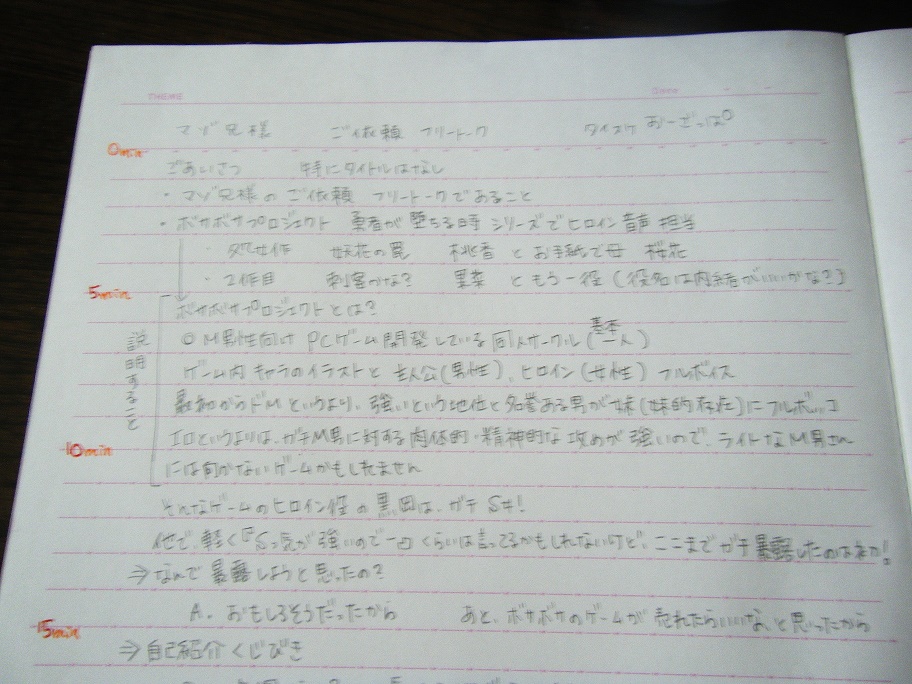 THEME Date
マゾ兄様 ご依頼 フリートーク タイスケ おーざっぱ
0min
ごあいさつ 特にタイトルはなし
・マゾ兄様の ご依頼 フリートークであること
・ボサボサプロジェクト 勇者が堕ちる時 シリーズでヒロイン音声 担当
・処女作 妖花の罠 桃香 と お手紙で母 桜花
・2作目 刺客かな? 里菜 と もう一役(役名は内緒がいいかな?)
5min
ボサボサプロジェクトとは?
説明すること
○ M男性向け PCゲーム開発している同人サークル(基本一人)
ゲーム内 キャラのイラストと 主人公(男性)、ヒロイン(女性) フルボイス
最初からドMというより、強いという地位と名誉ある男が妹(妹的存在)にフルボッコ
エロというよりは、ガチM男に対する肉体的・精神的な攻めが強いので、ライトなM男さん
10min
には向かないゲームかもしれません
そんなゲームのヒロイン役の黒田は、ガチS♀!
他で、軽く『Sっ気が強いので』くらいは言ってるかもしれないけど、ここまでガチ暴露したのはネカ!
⇒なんで暴露しようと思ったの?
A. おもしろそうだったから あと、ボサボサのゲームが 売れたらいいな、と思ったから
15min
⇒自己紹介くじびき